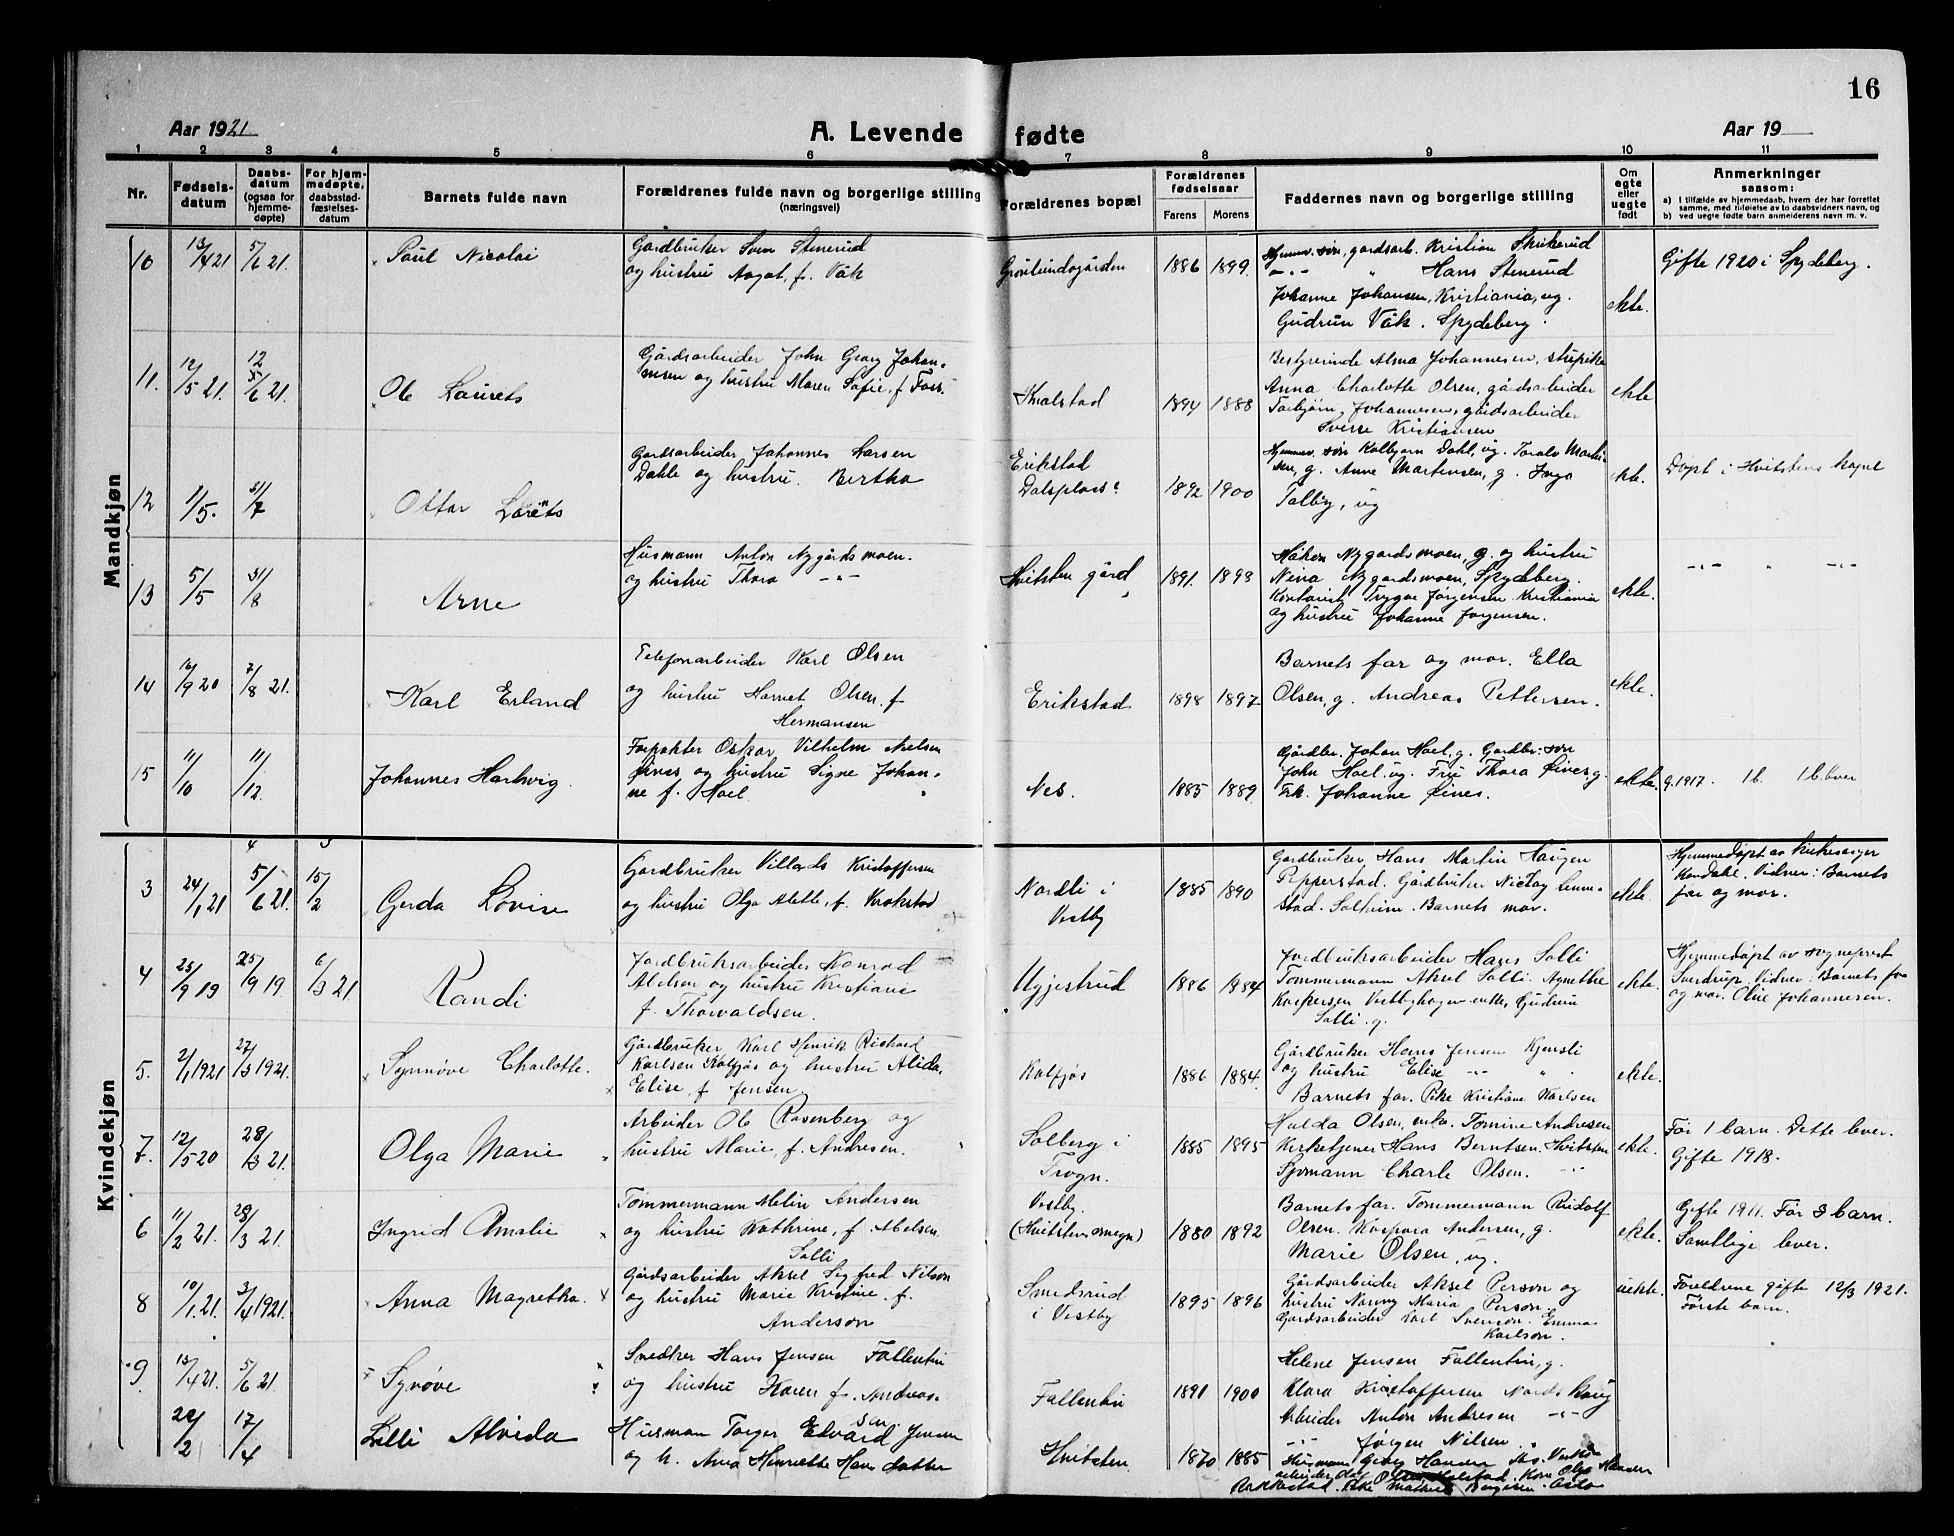 16
Aar 1921
A. Levende fødte
Aar 19
1 2 3 4 5 6 7 8 9 10 11
Nr.
Fødsels-
datum
Daabs-
datum
(ogsaa for
hjemme-
døpte)
For hjem-
medøpte,
daabsstad-
fæstelses-
datum
Barnets fulde navn
Forældrenes fulde navn og borgerlige stilling
(næringsvei)
Forældrenes bopæl
Forældrenes
fødselsaar
Farens Morens
Faddernes navn og borgerlige stilling
Om
egte
eller
uegte
født
Anmerkninger
saasom:
a) I tilfælde av hjemmedaab, hvem der har forrettet
samme, med tilføielse av to daabsvidners navn, og
b) ved uegte fødte barn anmelderens navn m. v.
Mandkjøn
10 13/4 21 5/6 21. Paul Nicolai
Gardbruker Sven Stenerud
og hustru Aagot, f. Våk
1886 1899.
Hjemmev. søn, gardsarb. Kristian
-"- " Hans Stenerud
Johanne Johansen, Kristiania, ug.
Gudrun Våk. Spydeberg.
ekte.
Gifte 1920 i Spydeberg.
11. 12/5 21. 12 5/6 21. Ole Laurets
Gårdsarbeider John Georg Johan-
nsen og hustru Maren Sofie, f. Foss.
Knalstad
1894 1888
Bestyrerinde Alma Johannesen,
Anna Charlotte Olsen, gårdsarbeider
Torbjørn Johannesen, gårdsarbeider
Sverre Kristiansen
ekte
12 1/5. 31/7 Ottar Lorëts
Gardsarbeider Johannes Larsen
Dahle og hustru. Bertha
Erikstad
Dalsplass
1892 1900
Hjemmev. søn Kolbjørn Dahl, ug. Toralv Marti-
sen, g. Anne Martensen, g. Inga
Tolby, ug
ekte.
Døpt i Hvitsten kapel
13 5/5 31/8 Arne
Husmann Anton Nygårdsmoen.
og hustru Thora -"-
Hvitsten gård
1891. 1898
Håkon Nygardsmoen, g. og hustru
Nena Nygardsmoen, Spydeberg.
Kontorist Trygve Jørgensen Kristiania
og hustru Johanne Jørgensen.
ekte.
-"- " -"-
14 16/9 20 7/8 21. Karl Erland
Telefonarbeider Karl Olsen
og hustru Harriet Olsen, f
Hermansen
Erikstad
1898 1897
Barnets far og mor. Ella
Olsen, g. Andreas Pettersen.
ekte.
15 11/10 11/12. Johannes Hartvig.
Forpakter Oskar Vilhelm Nielsen
Øines og hustru Signe Johan-
ne f. Hoel.
Nes.
1885 1889
Gårdbr. Johan Hoel, g. Gardbr. søn
John Hoel. ug. Fru Thora Øines g.
Frk. Johanne Øines.
ekte.
g. 1917. 1 b. 1 b. lever
Kvindekjøn
4 5
3 24/1 21 5/6 21. 15/2 Gerda Lovise
Gardbruker Villads Kristoffersen
og hustru Olga Alette, f. Krokstad
Nordli i
Vestby
1885 1890
Gardbruker Hans Martin Haugen
Pepperstad. Gårdbruker Nicolay
stad. Solheim. Barnets mor.
ekte.
Hjemmedøpt av kirkesanger
Vidner: Barnets
far og mor.
4 25/9 19 25/9 19. 6/3 21 Randi
Jordbruksarbeider Konrad
Nielsen og hustru Kristiane
f. Thorvaldsen.
1886 1884
Jordbruksarbeider Hans Solli
Tømmermann Aksel Solli. Agnethe
Kaspersen Vestbyhagen enke, Gudrun
Solli. g.
ekte.
Hjemmedøpt av sogneprest
Sverdrup. Vidner: Barnets far
og mor. Oline Johannesen.
5. 2/1 1921 27/3 1921. Synnøve Charlotte.
Gårdbruker Karl Henrik Richard
Karlsen Kolfjøs og hustru Alida,
Elise, f. Jensen.
Kolfjøs
1886 1884.
Gårdbruker Hans Jensen Kjensli
og hustru Elise -"- " .
Barnets far. Pike Kristiane Karlsen
ekte.
7. 12/5 20 28/3 21. Olga Marie
Arbeider Ole Rosenberg og
hustru Marie, f. Andresen.
Solberg i
Trogn.
1885 1895
Hulda Olsen, enke. Tomine Andresen
Kirketjener Hans Berntsen. Hvitsten
Sjømann Charle Olsen. -"-
ekte.
Før 1 barn. Dette lever.
Gifte 1918.
6 11/2 21. 28/3 21. Ingrid Amalie
Tømmermann Andersen
og hustru Kathrine, f. Nielsen
Solli
Vestby.
(Hvitsten omegn)
1880 1892
Barnets far. Tømmermann Rudolf
Olsen. Kaspara Andersen, g.
Marie Olsen, ug.
ekte.
Gifte 1911. Før 3 barn.
Samtlige lever.
8 10/1 21. 3/4 1921. Anna Magretha.
Gårdsarbeider Aksel Sigfred Nilson
og hustru Marie Kristine, f.
Anderson
Smedsrud
i Vestby
1895 1896
Gårdsarbeider Aksel Person og
hustru Maria Person.
Gårdsarbeider Karl Svenson. Emma
Karlson.
uekte.
Foreldrene gifte 12/3 1921.
Første barn.
9 13/4 21. 5/6 21. Synøve
Snedker Hans Jensen Fallentin
og hustru Karen f. Andreas-
sen
Fallentin
1891 1900
Helene Jensen Fallentin, g.
Klara Kristoffersen Nords
Arbeider Anton Andresen -"-
-"- Jørgen Nilsen
22/2 17/4 Lilli Alvida
Husman Torger Edvard Jensen
og h. Anna Henriette Hans datter
Hvitsten.
1870 1885
Husmann Georg Hansen
arbeider Olga Hansen
Pike Mathilde Oslo